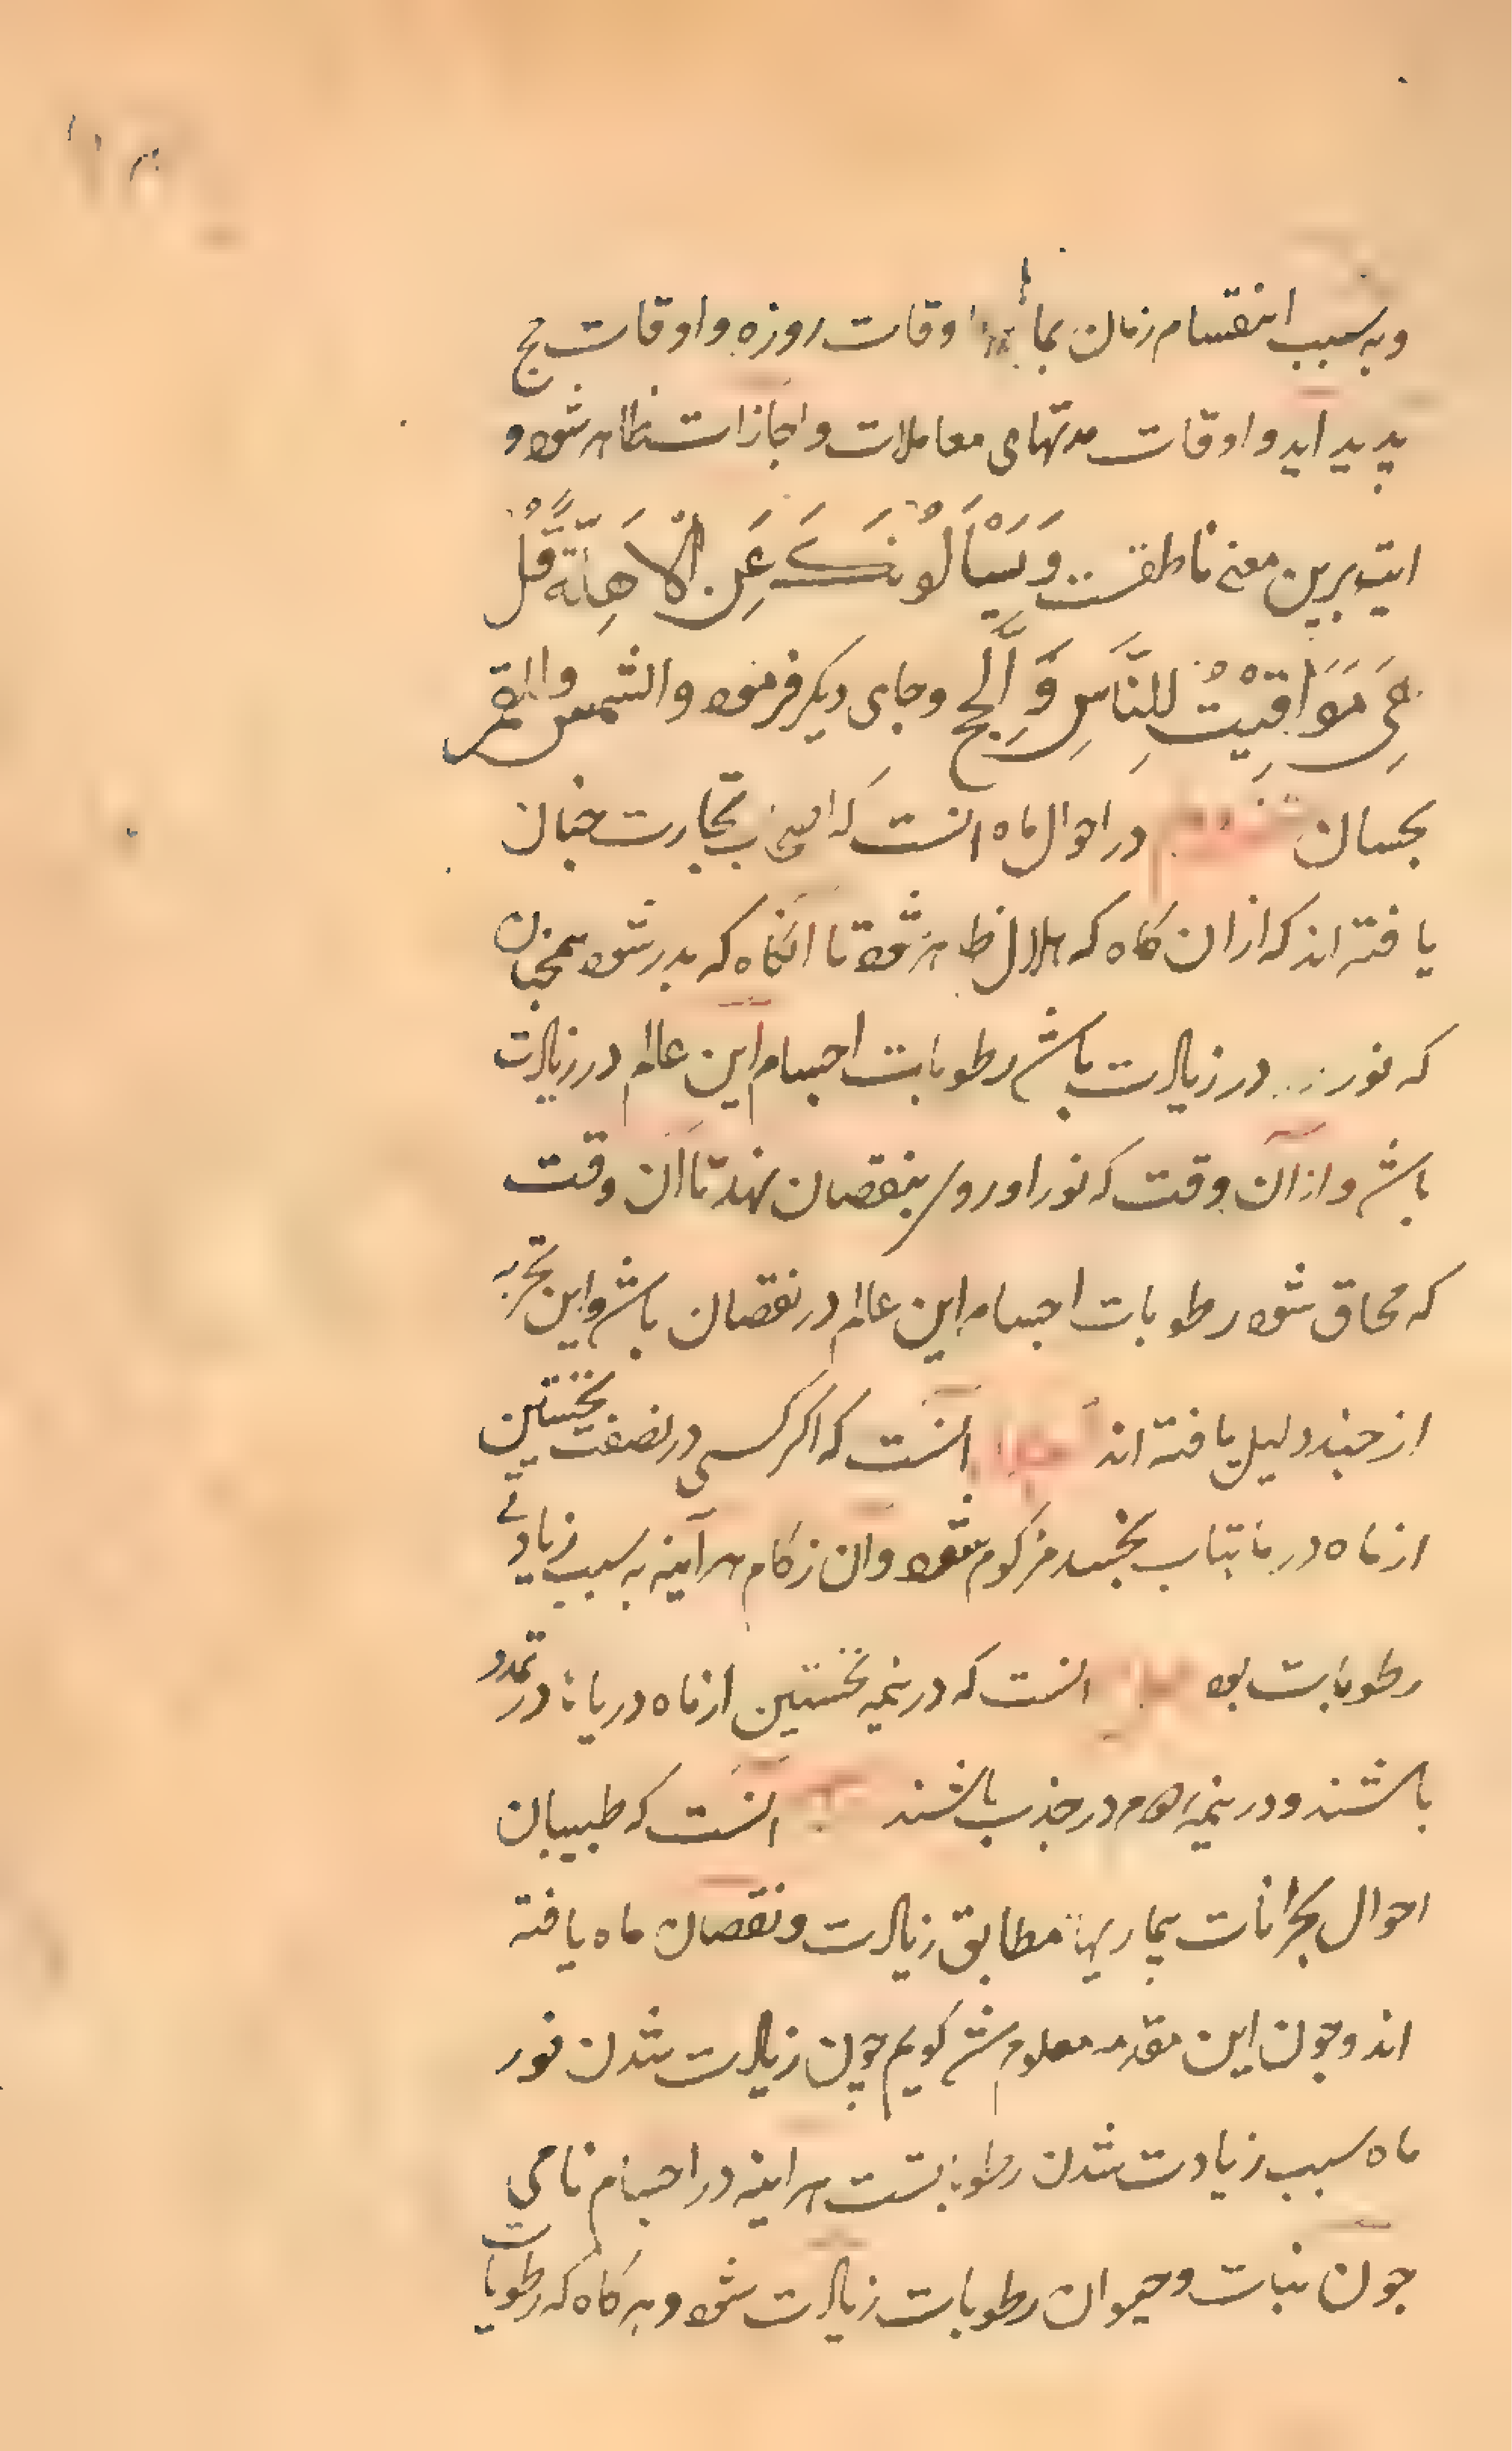 وبه سبب انقسام زمان بماه‌ها اوقات روزه واوقات حج
پدید اید واوقات مدتهای معاملات واجازات ظاهر شود و
ایت برین معنی ناطقست وَيَسْأَلُونَكَ عَنِ الْاَهِلَّةِ قُلْ
هِيَ مَوَاقِيْتُ لِلنَّاسِ وَالْحَجِّ وجای دیکر فرمود والشمس والقمر
بحسبان در احوال ماه انست که اصحاب تجارب چنان
یافته اند که از ان کاه که هلال ظاهر شود تا انکاه که بدر شود همچنان
که نور در زیادت باشد رطوبات اجسام این عالم در زیادت
باشد واز آن وقت که نور او روی بنقصان نهد تا ان وقت
که محاق شود رطوبات اجسام این عالم در نقصان باشد واین تجربه
از چند دلیل یافته اند انست که اکر کسی در نصف نخستین
از ماه در ماهتاب بخسبد مزکوم شود وان زکام هرآینه به سبب زیادتی
رطوبات بود انست که در نیمه نخستین از ماه دریاها در مد
باشند ودر نیمه دوم در جذب باشند انست که طبیبان
احوال بحرانات بیماریها مطابق زیادت ونقصان ماه یافته
اند وچون این مقدمه معلوم شد کویم چون زیادت شدن نور
ماه سبب زیادت شدن رطوبتست هراینه در اجسام نامی
چون نبات وحیوان رطوبات زیادت شود وهرکاه که رطوبات